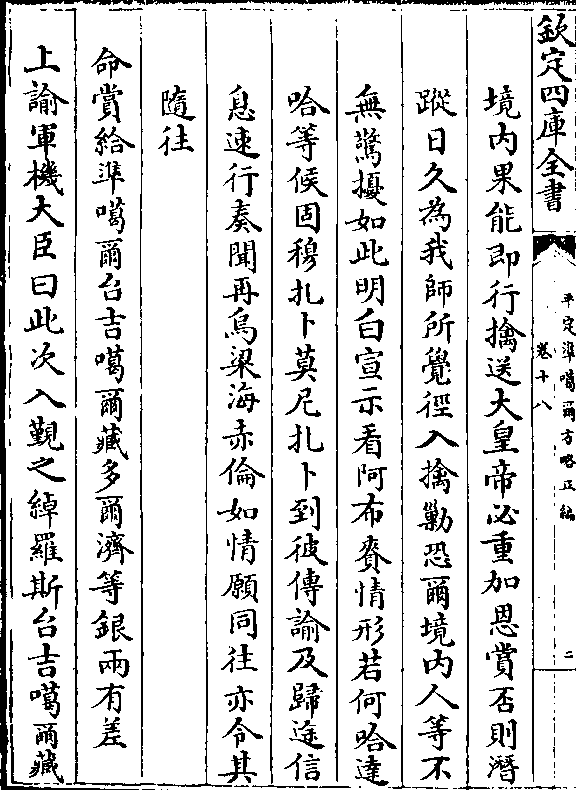 欽定四庫全書
平定準噶爾方略正編
卷十八
二
境内果能即行擒送大皇帝必重加恩賞否則潛
蹤日久為我師所覺徑入擒勦恐爾境内人等不
無驚擾如此明白宣示看阿布賚情形若何哈達
哈等候固穆扎卜莫尼扎卜到彼傳諭及歸途信
息速行奏聞再烏梁海赤倫如情願同往亦令其
隨往
命賞給準噶爾台吉噶爾藏多爾濟等銀兩有差
上諭軍機大臣曰此次入覲之綽羅斯台吉噶爾藏